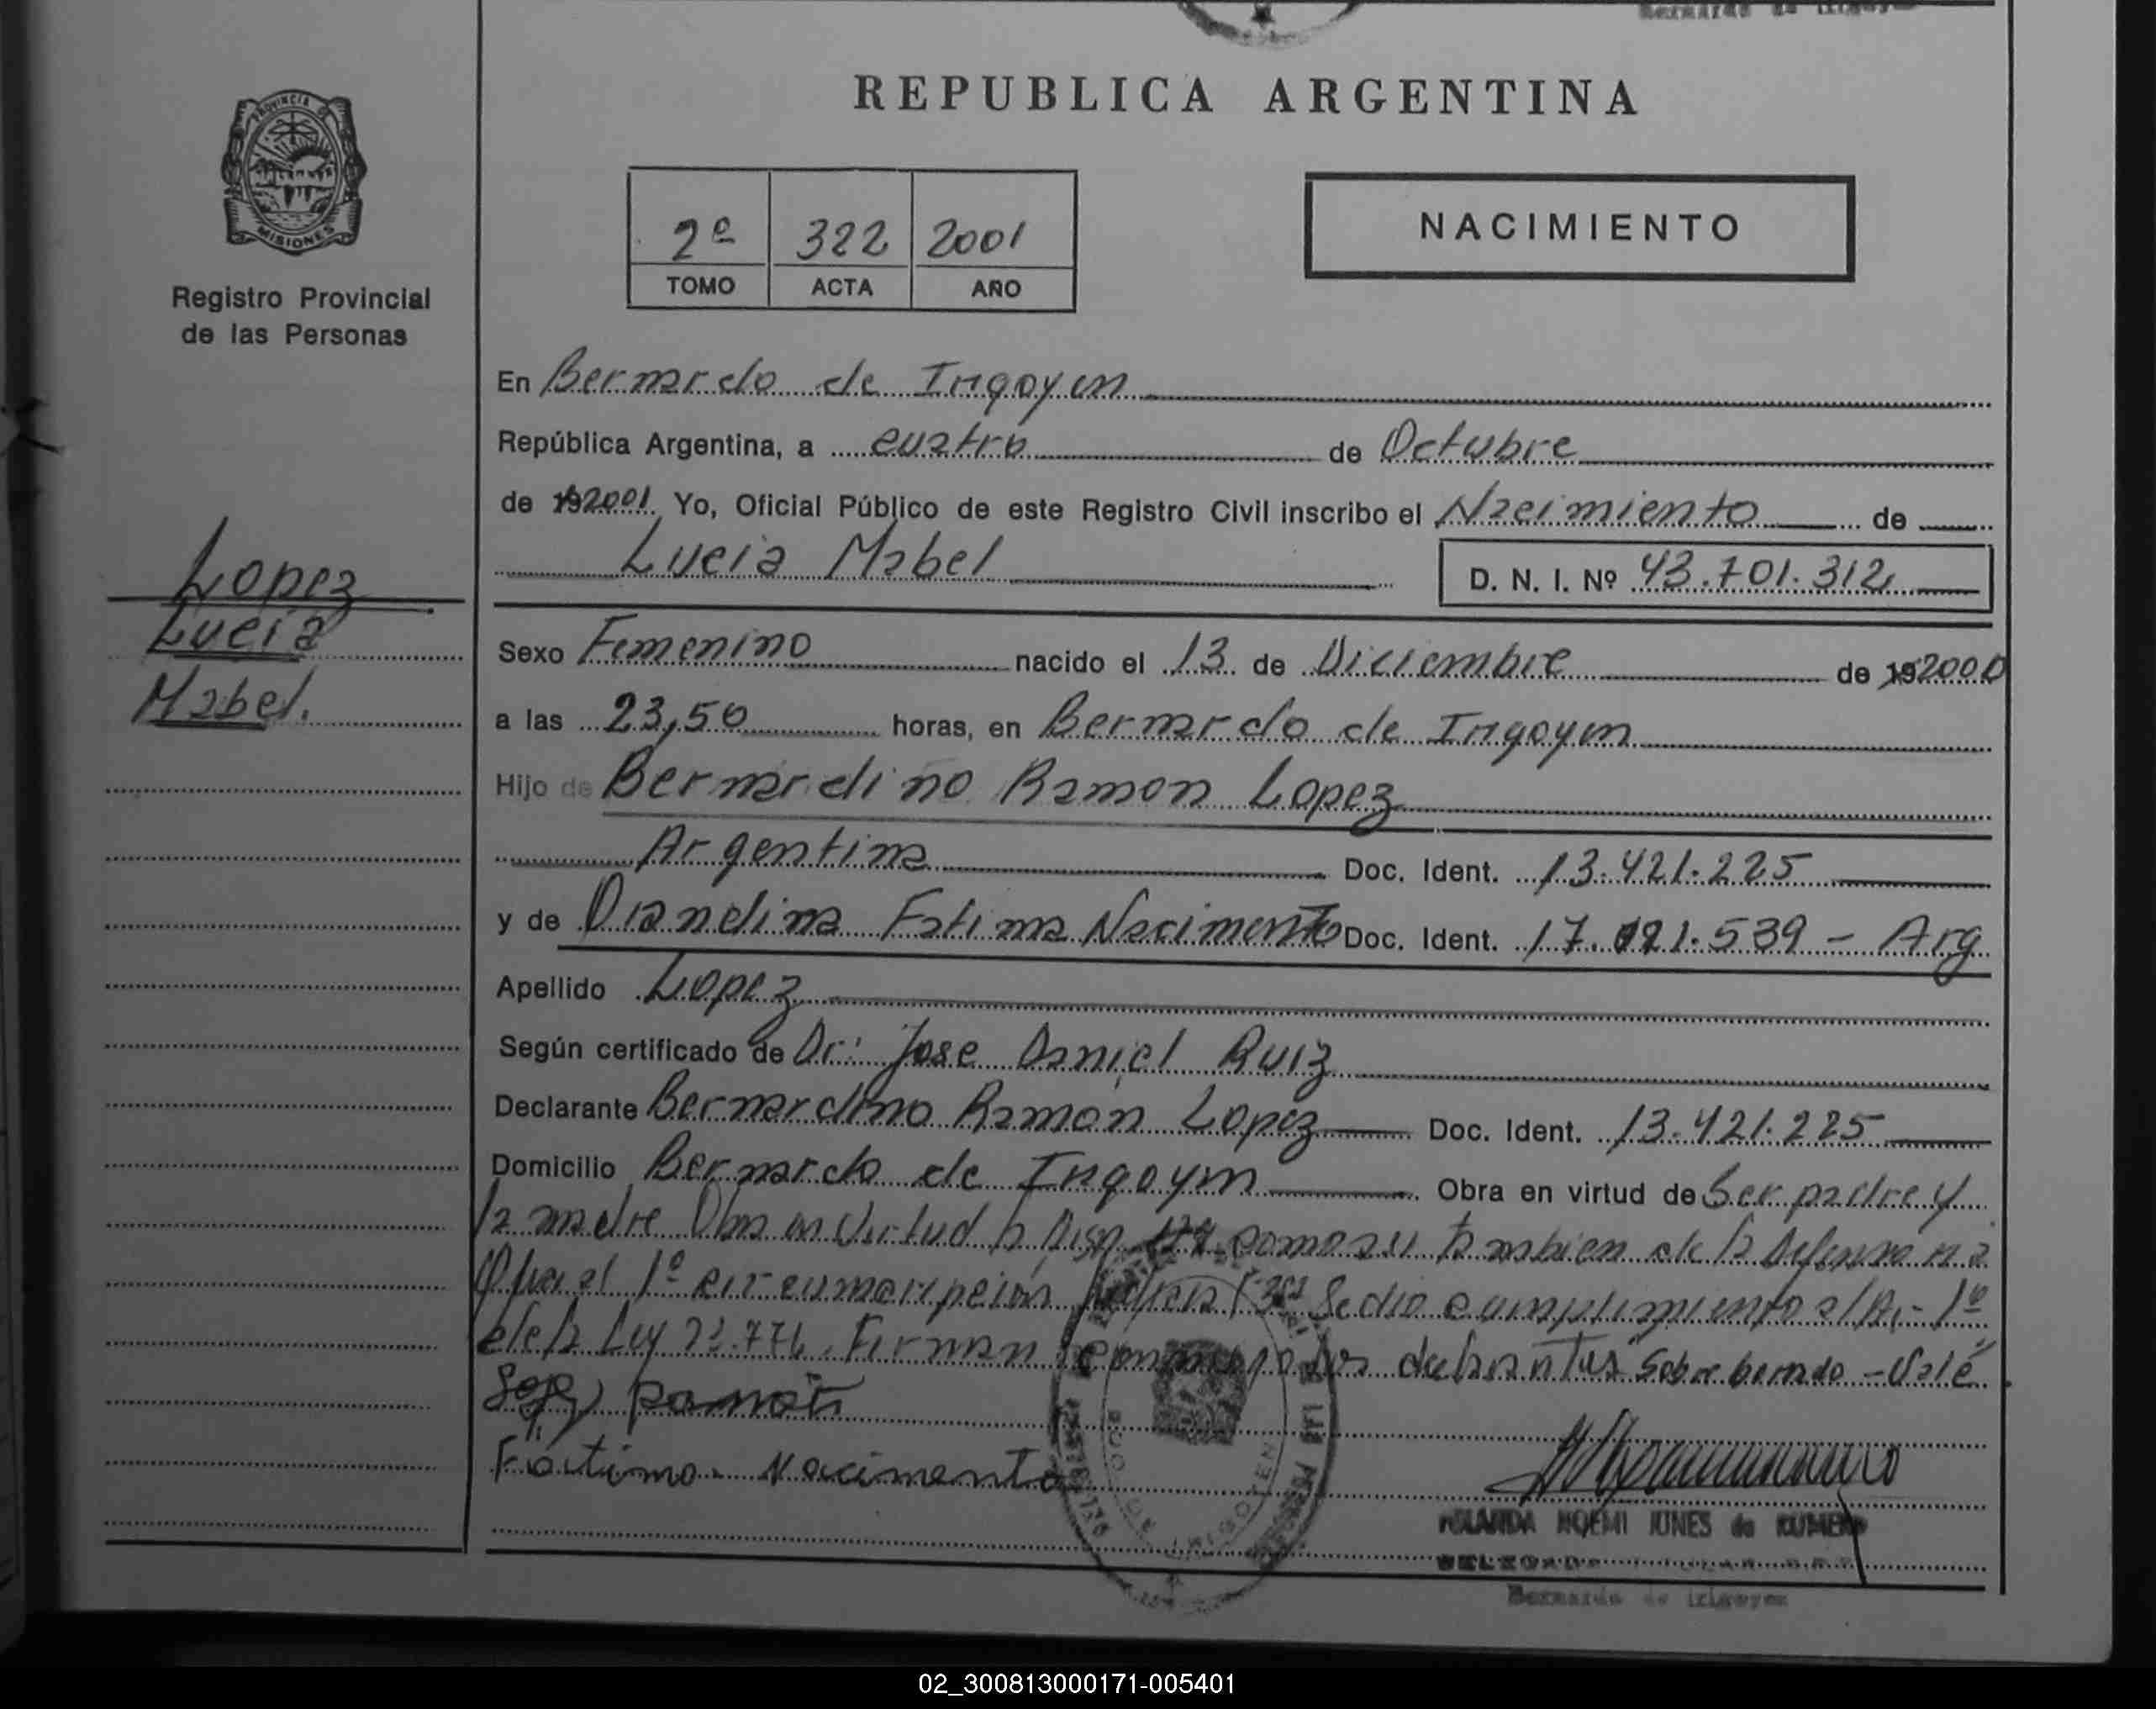 REPUBLICA ARGENTINA
PROVINCIA
MISIONES
Registro Provincial
de las Personas
2ª 322 2001
TOMO ACTA AÑO
NACIMIENTO
Lopez
Lucia
Mabel.
En Bernardo de Irigoyen
República Argentina, a cuatro de Octubre
de 192001. Yo, Oficial Público de este Registro Civil inscribo el Nacimiento de
Lucia Mabel D. N. I. Nº 43.701.312
Sexo Femenino nacido el 13 de Diciembre de 192000
a las 23,50 horas, en Bernardo de Irigoyen
Hijo de Bernardino Ramon Lopez
Argentina Doc. Ident. 13.421.225
y de Fatima Nacimento Doc. Ident. 17.121.539 - Arg
Apellido Lopez
Según certificado de Dr: Jose Daniel Ruiz
Declarante Bernardino Ramon Lopez Doc. Ident. 13.421.225
Domicilio Bernardo de Irigoyen Obra en virtud de Ser padre y
la madre virtud tambien de la
1º
de la Ley Firman Sobre borrado - Vale
Fatima Nacimento
YOLANDA NOEMI JUNES de
Bernardo de Irigoyen
02_300813000171-005401